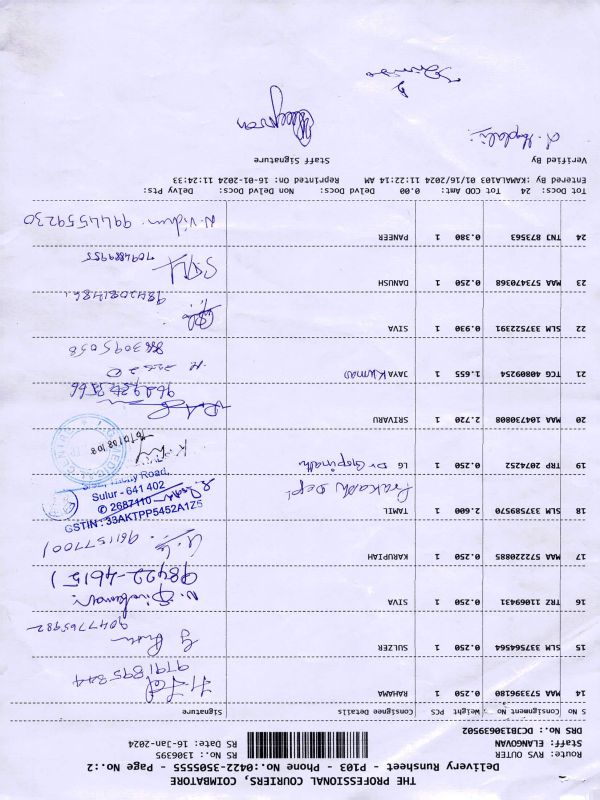 THE PROFESSIONAL COURIERS, COIMBATORE
Delivery Runsheet - P103 - Phone No.:0422-3505555 - Page No.:2
Route: RVS OUTER RS No.: 1306395
Staff: ELANGOVAN RS Date: 16-Jan-2024
DRS No.: DCJB130639502
S No Consignment No Weight PCS Consignee Details Signature
14 MAA 573396180 0.250 1 RAHAMA 9791895844
15 SLM 337564564 0.250 1 SULZER 9047765982
16 TRZ 11069431 0.250 1 SIVA N. Sivakumar. 98422-4615)
17 MAA 572220885 0.250 1 KARUPIAH 9611577001
18 SLM 337589570 2.600 1 TAMIL Prakash Dept
GSTIN : 33AKTPP5452A1Z5
✆ 2687110
Sulur - 641 402
Trichy Road,
19 TRP 2074252 0.250 1 LG Dr Gopinath
20 MAA 104730808 2.720 1 SRIVARU
21 TCG 40809254 1.655 1 JAYA Kumar
22 SLM 337522391 0.930 1 SIVA
23 MAA 573470368 0.250 1 DANUSH 7094889955
24 TNJ 873563 0.380 1 PANEER N. Vidhun 9944559230
Tot Docs: 24 Tot COD Amt: 0.00 Delvd Docs: Non Delvd Docs: Delvy Pts:
Entered By :KAMALA103 01/16/2024 11:22:14 AM Reprinted On: 16-01-2024 11:24:33
Verified By Staff Signature